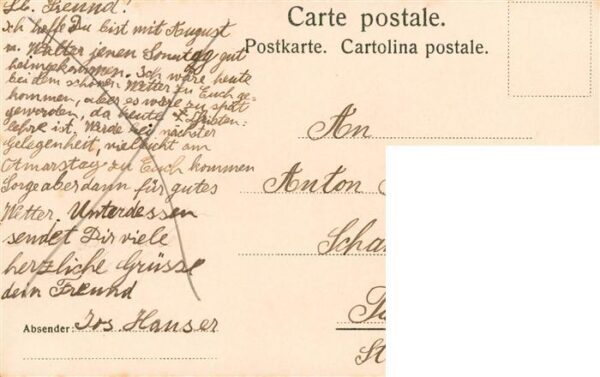 Lb. Freund!
Ich hoffe Du bist mit August
u. Walter jenen Sonntag gut
heimgekommen. Ich wäre heute
bei dem schönen Wetter zu Euch ge-
kommen, aber es wäre zu spät
geworden, da heute Christen-
lehre ist. Werde bei nächster
Gelegenheit, vielleicht am
Otmarstag zu Euch kommen
Sorge aber dann für gutes
Wetter. Unterdessen
sendet Dir viele
herzliche Grüsse
dein Freund
Absender: Jos Hauser
Carte postale.
Postkarte. Cartolina postale.
An
Anton
Scha
St